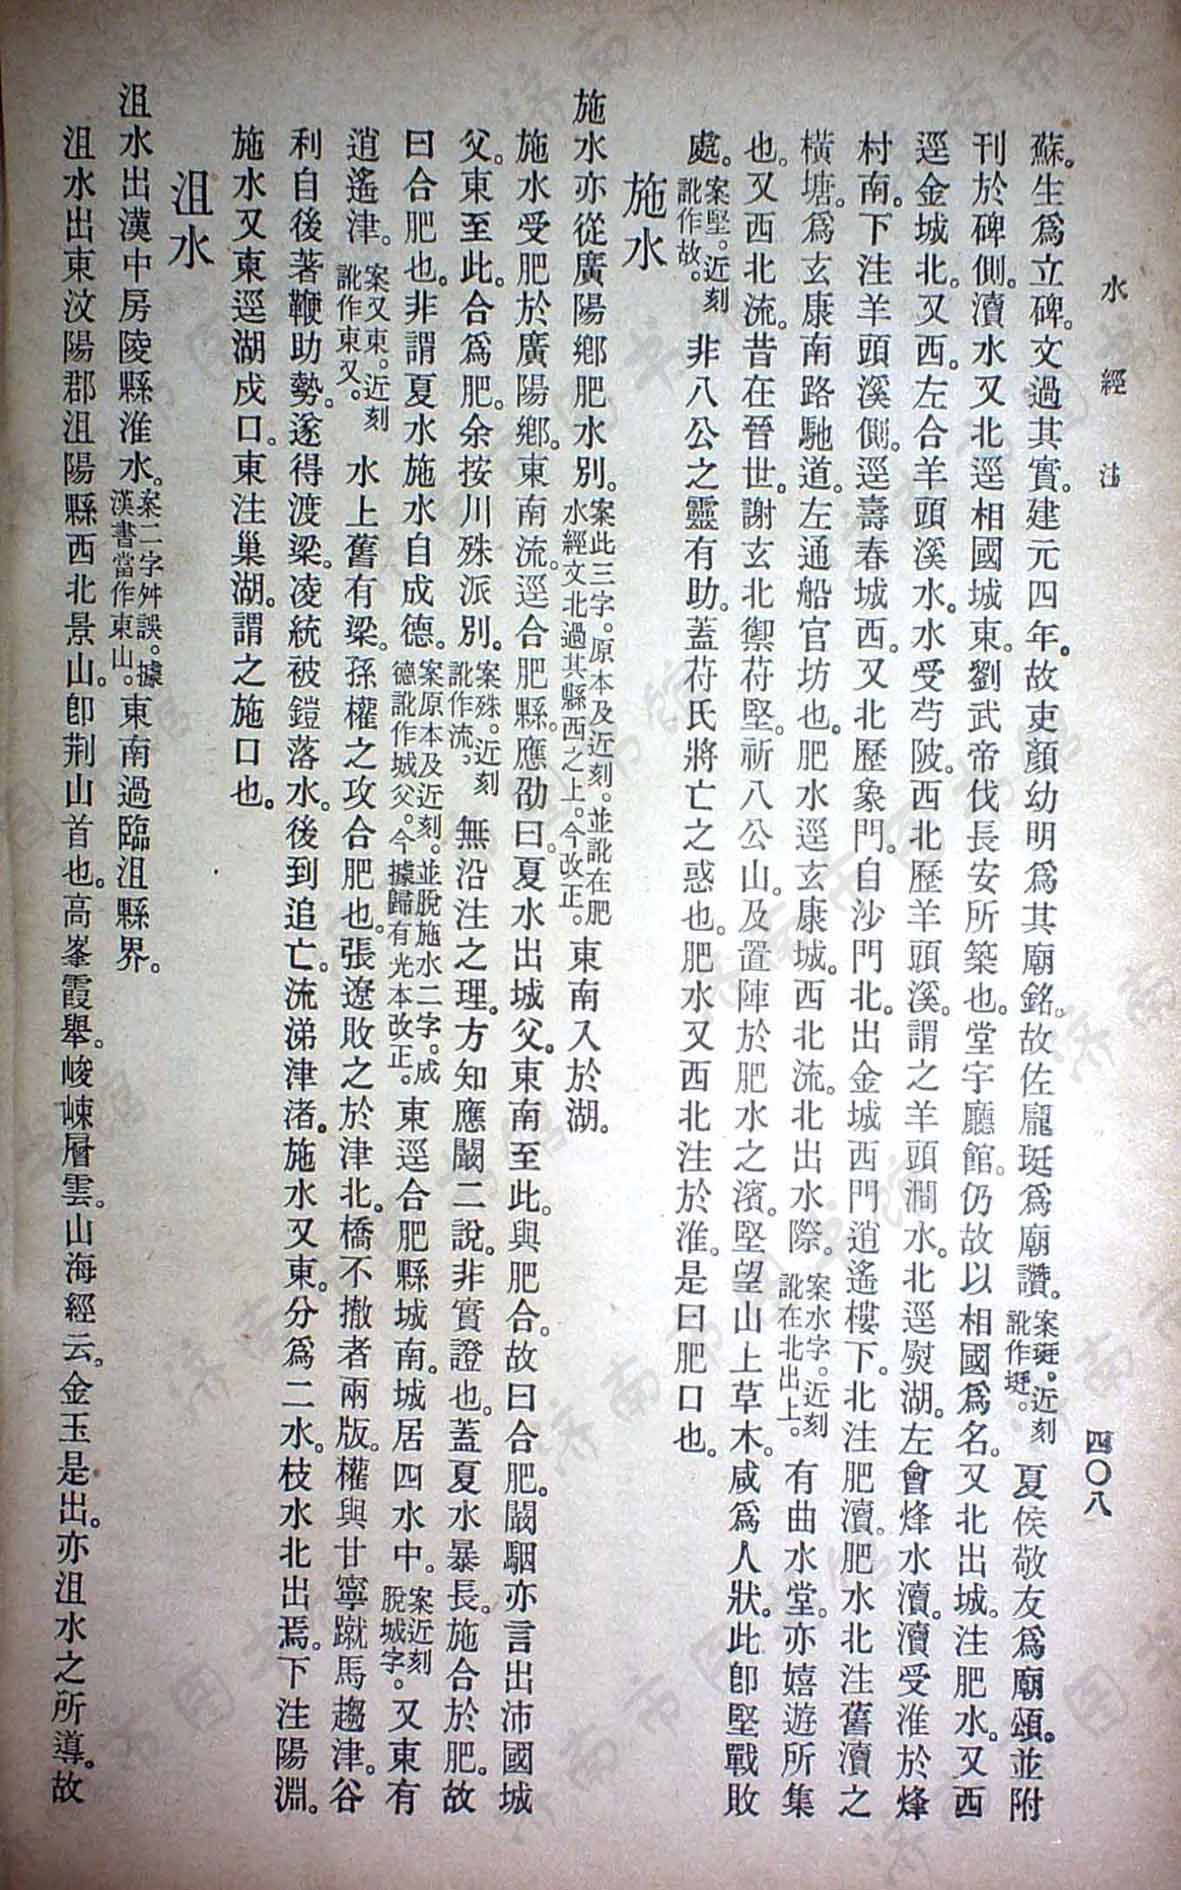 水經注
四〇八
蘇。生爲立碑。文過其實。建元四年。故吏顏幼明爲其廟銘。故佐龐珽爲廟讚。案珽。近刻訛作埏。夏侯敬友爲廟頌。並附
刊於碑側。瀆水又北逕相國城東。劉武帝伐長安所築也。堂宇廳館。仍故以相國爲名。又北出城。注肥水。又西
逕金城北。又西。左合羊頭溪水。水受芍陂。西北歷羊頭溪。謂之羊頭澗水。北逕熨湖。左會烽水瀆。瀆受淮於烽
村南。下注羊頭溪側。逕壽春城西。又北歷象門。自沙門北。出金城西門逍遙樓下。北注肥瀆。肥水北注舊瀆之
橫塘。爲玄康南路馳道。左通船官坊也。肥水逕玄康城。西北流。北出水際。案水字。近刻訛在北出上。有曲水堂。亦嬉遊所集
也。又西北流。昔在晉世。謝玄北禦苻堅。祈八公山。及置陣於肥水之濱。堅望山上草木。咸爲人狀。此卽堅戰敗
處。案堅。近刻訛作故。非八公之靈有助。蓋苻氏將亡之惑也。肥水又西北注於淮。是曰肥口也。
施水
施水亦從廣陽鄉肥水別。案此三字。原本及近刻。並訛在肥水經文北過其縣西之上。今改正。東南入於湖。
施水受肥於廣陽鄉。東南流。逕合肥縣。應劭曰。夏水出城父。東南至此。與肥合。故曰合肥。闞駰亦言出沛國城
父。東至此。合爲肥。余按川殊派別。案殊。近刻訛作流。無沿注之理。方知應闞二說。非實證也。蓋夏水暴長。施合於肥。故
曰合肥也。非謂夏水施水自成德。案原本及近刻。並脫施水二字。成德訛作城父。今據歸有光本改正。東逕合肥縣城南。城居四水中。案近刻脫城字。又東有
逍遙津。案又東。近刻訛作東又。水上舊有梁。孫權之攻合肥也。張遼敗之於津北。橋不撤者兩版。權與甘寧蹴馬趨津。谷
利自後著鞭助勢。遂得渡梁。凌統被鎧落水。後到追亡。流涕津渚。施水又東。分爲二水。枝水北出焉。下注陽淵。
施水又東逕湖戍口。東注巢湖。謂之施口也。
沮水
沮水出漢中房陵縣淮水。案二字舛誤。據漢書當作東山。東南過臨沮縣界。
沮水出東汶陽郡沮陽縣西北景山。卽荆山首也。高峯霞舉。峻崍層雲。山海經云。金玉是出。亦沮水之所導。故